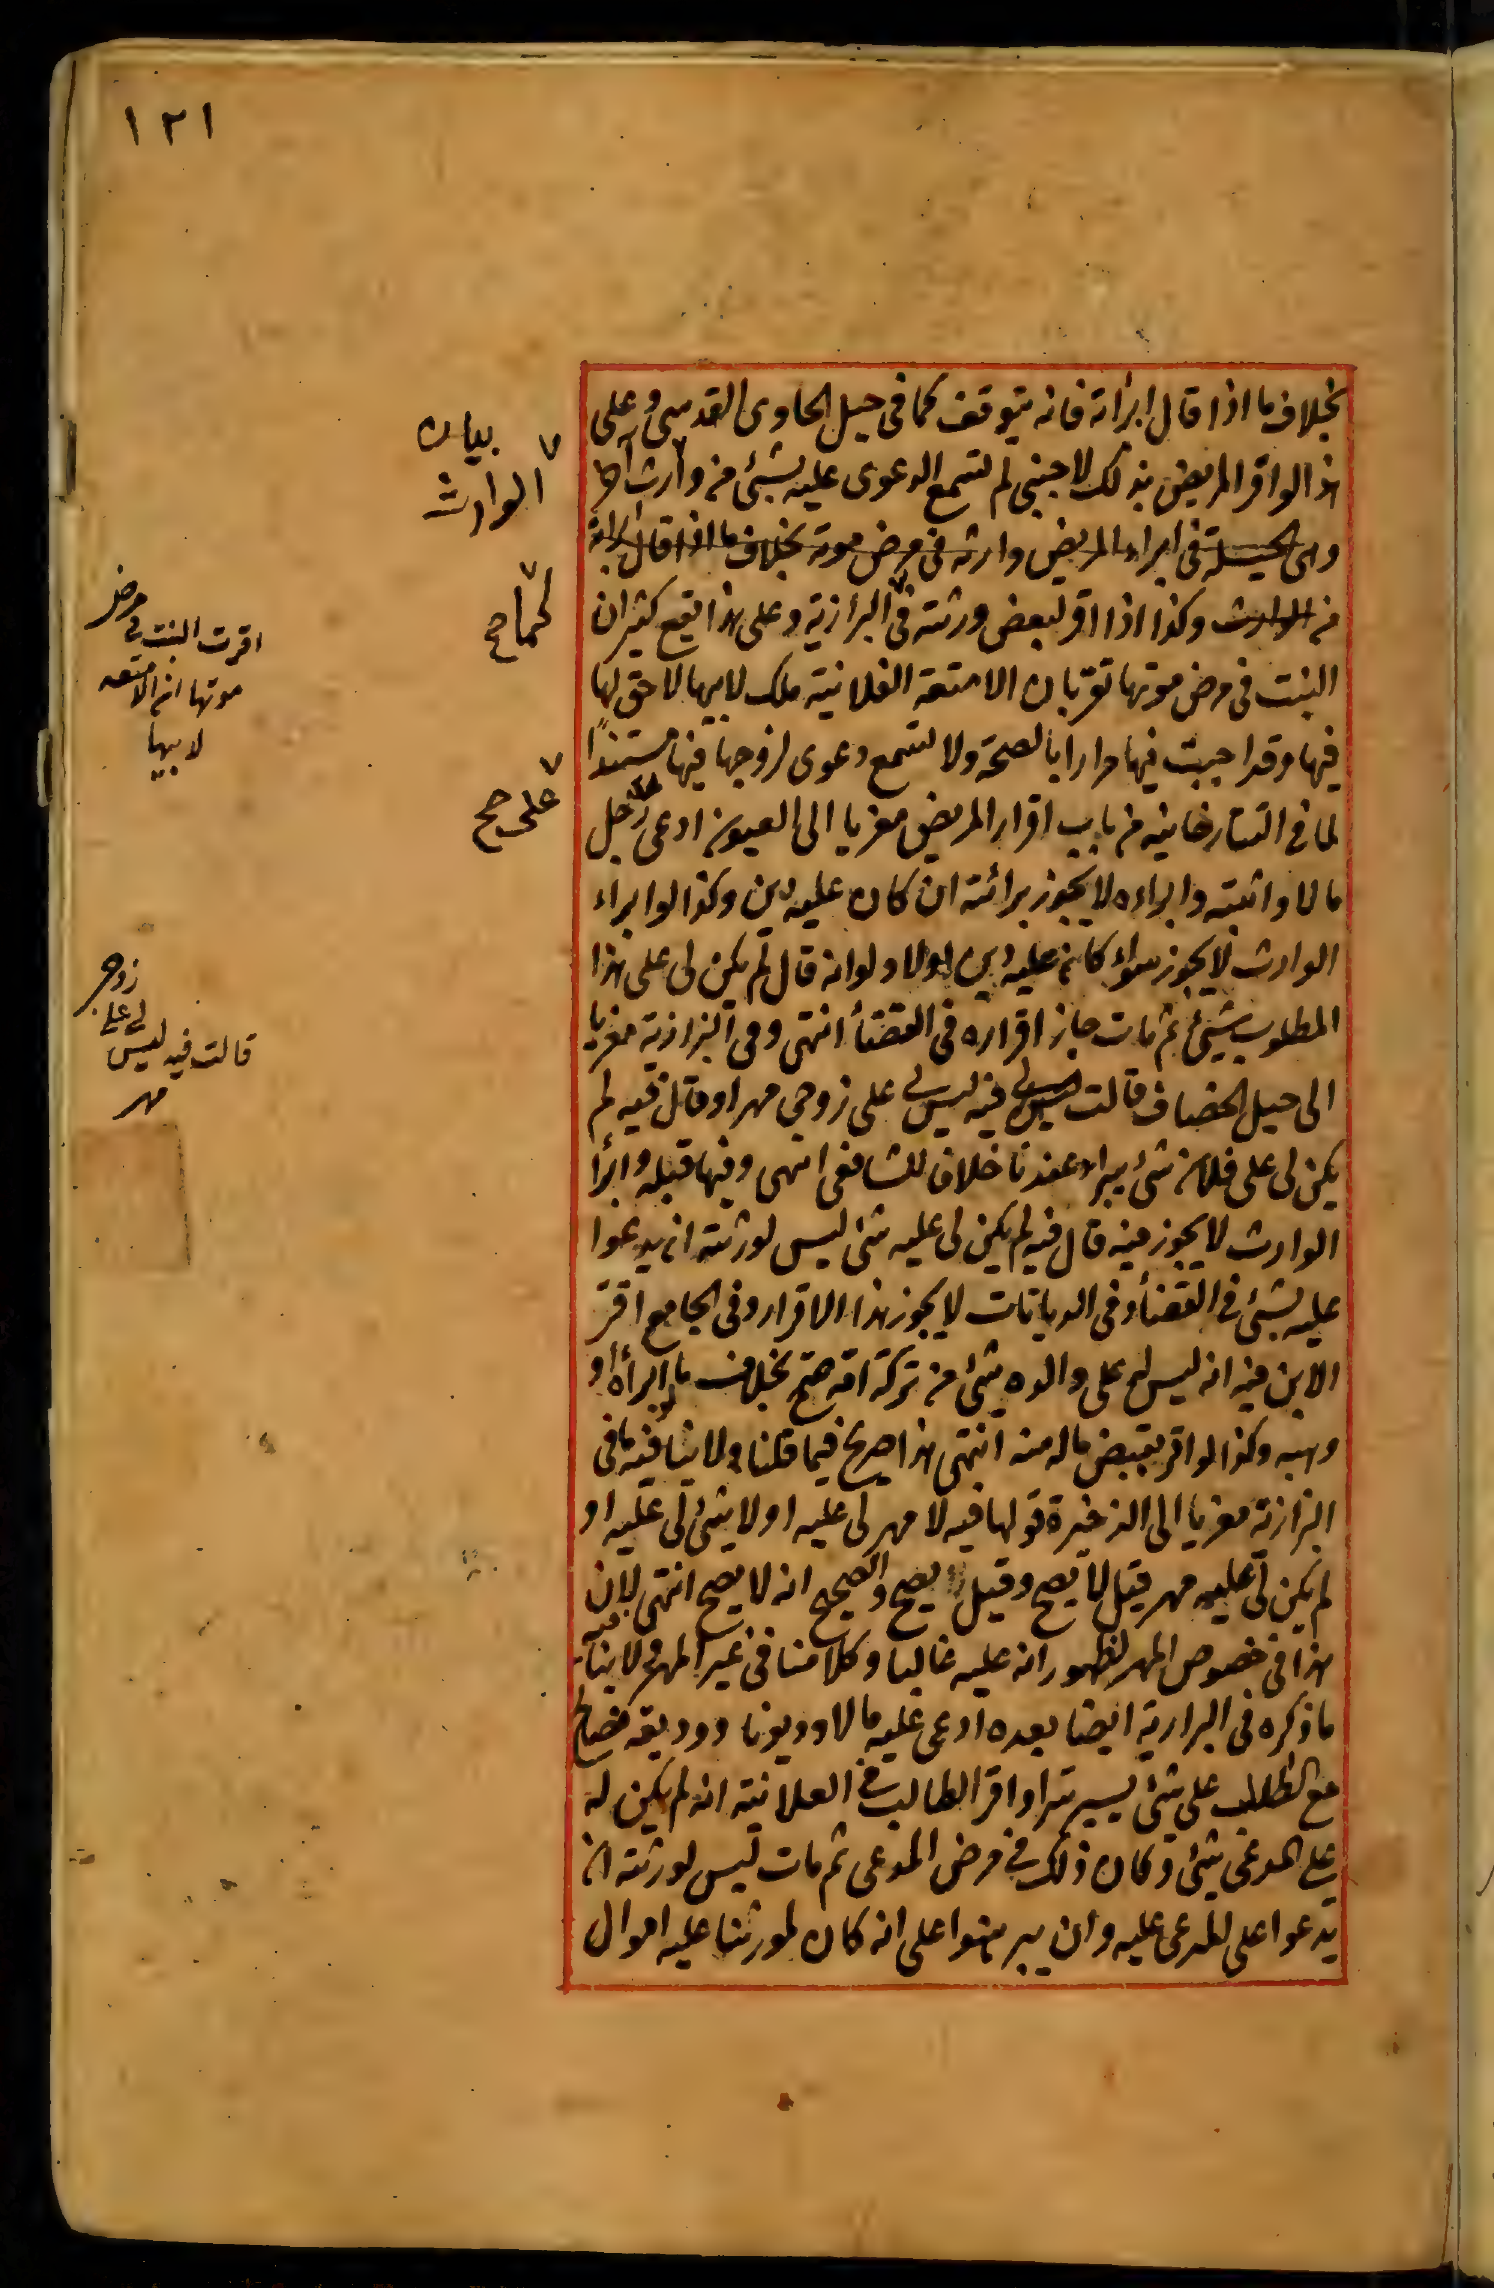 ١٢١
بخلاف ما اذا قال ابرأته فانه يتوقف كما فى حيل الحاوى القدسى وعلى
هذا لو اقر المريض بذلك لاجنبى لم تسمع الدعوى عليه بشئ من وارث
وهى الحيلة فى ابراء المريض وارثه فى مرض موته بخلاف ما اذا قال ابرأته
من الوارث وكذا اذا اقر لبعض ورثته فى البزازية وعلى هذا يقع كثيرا ن
البنت فى مرض موتها تقر بان الامتعة الفلانية ملك لابيها لا حق لها
فيها وقد اجبت فيها مرارا بالصحة ولا تسمع دعوى لزوجها فيها مستندًا
لما فى التتارخانيه من باب اقرار المريض معزيا الى العيون ادعى رجل
مالا واثبته وابراءه لا يجوز برائته ان كان عليه دين وكذا لو ابراء
الوارث لا يجوز سواء كان عليه دين اولا ولو انه قال لم يكن لى على هذا
المطلوب شئ ثم مات جاز اقراره فى القضأ انتهى وفى البزازية معزيا
الى حيل الخصاف قالت فيه ليس لى على زوجى مهر او قال فيه لم
يكن لى على فلان شئ يبراء عندنا خلافا للشافعى انتهى وفيها قبله وابرأ
الوارث لا يجوز فيه قال فيه لم يكن لى عليه شئ ليس لورثته ان يدعوا
عليه بشئ فى القضأ وفى الديانات لا يجوز هذا الاقرار وفى الجامع اقر
الابن فيه انه ليس له على والده شئ من تركة امه صح بخلاف ما لو ابرأه او
وهبه وكذا لو اقر بقبض ماله منه انتهى هذا صريح فيما قلنا ولا ينافيه ما فى
البزازية معزيا الى الذخيرة قولها فيه لا مهر لى عليه او لا شئ لى عليه او
لم يكن لى عليه مهر قيل لا يصح وقيل يصح والصحيح انه لا يصح انتهى لان
هذا فى خصوص المهر لظهور انه عليه غالبا وكلامنا فى غير المهر ولا ينافيه
ما ذكره فى البزازية ايضا بعده ادعى عليه مالا وديونا ووديعه فصالح
مع الطالب على شئ يسير سرا واقر الطالب فى العلانية انه لم يكن له
على المدعى شئ وكان ذلك فى مرض المدعى ثم مات ليس لورثته ان
يدعوا على المدعى عليه وان برهنوا على انه كان لمورثنا عليه اموال
بيان
الوارث
كما صح
على صح
اقرت البنت فى مرض
موتها ان الامتعه
لابيها
قالت فيه ليس لى على زوجى
مهر